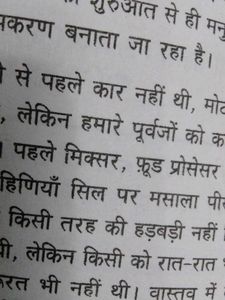 शुरुआत से ही मनु
पकरण बनाता जा रहा है।
से पहले कार नहीं थी, मोट
, लेकिन हमारे पूर्वजों को क
। पहले मिक्सर, फ़ूड प्रोसेसर
हिणियाँ सिल पर मसाला पी
किसी तरह की हड़बड़ी नहीं
थी, लेकिन किसी को रात-रात
रत भी नहीं थी। वास्तव में